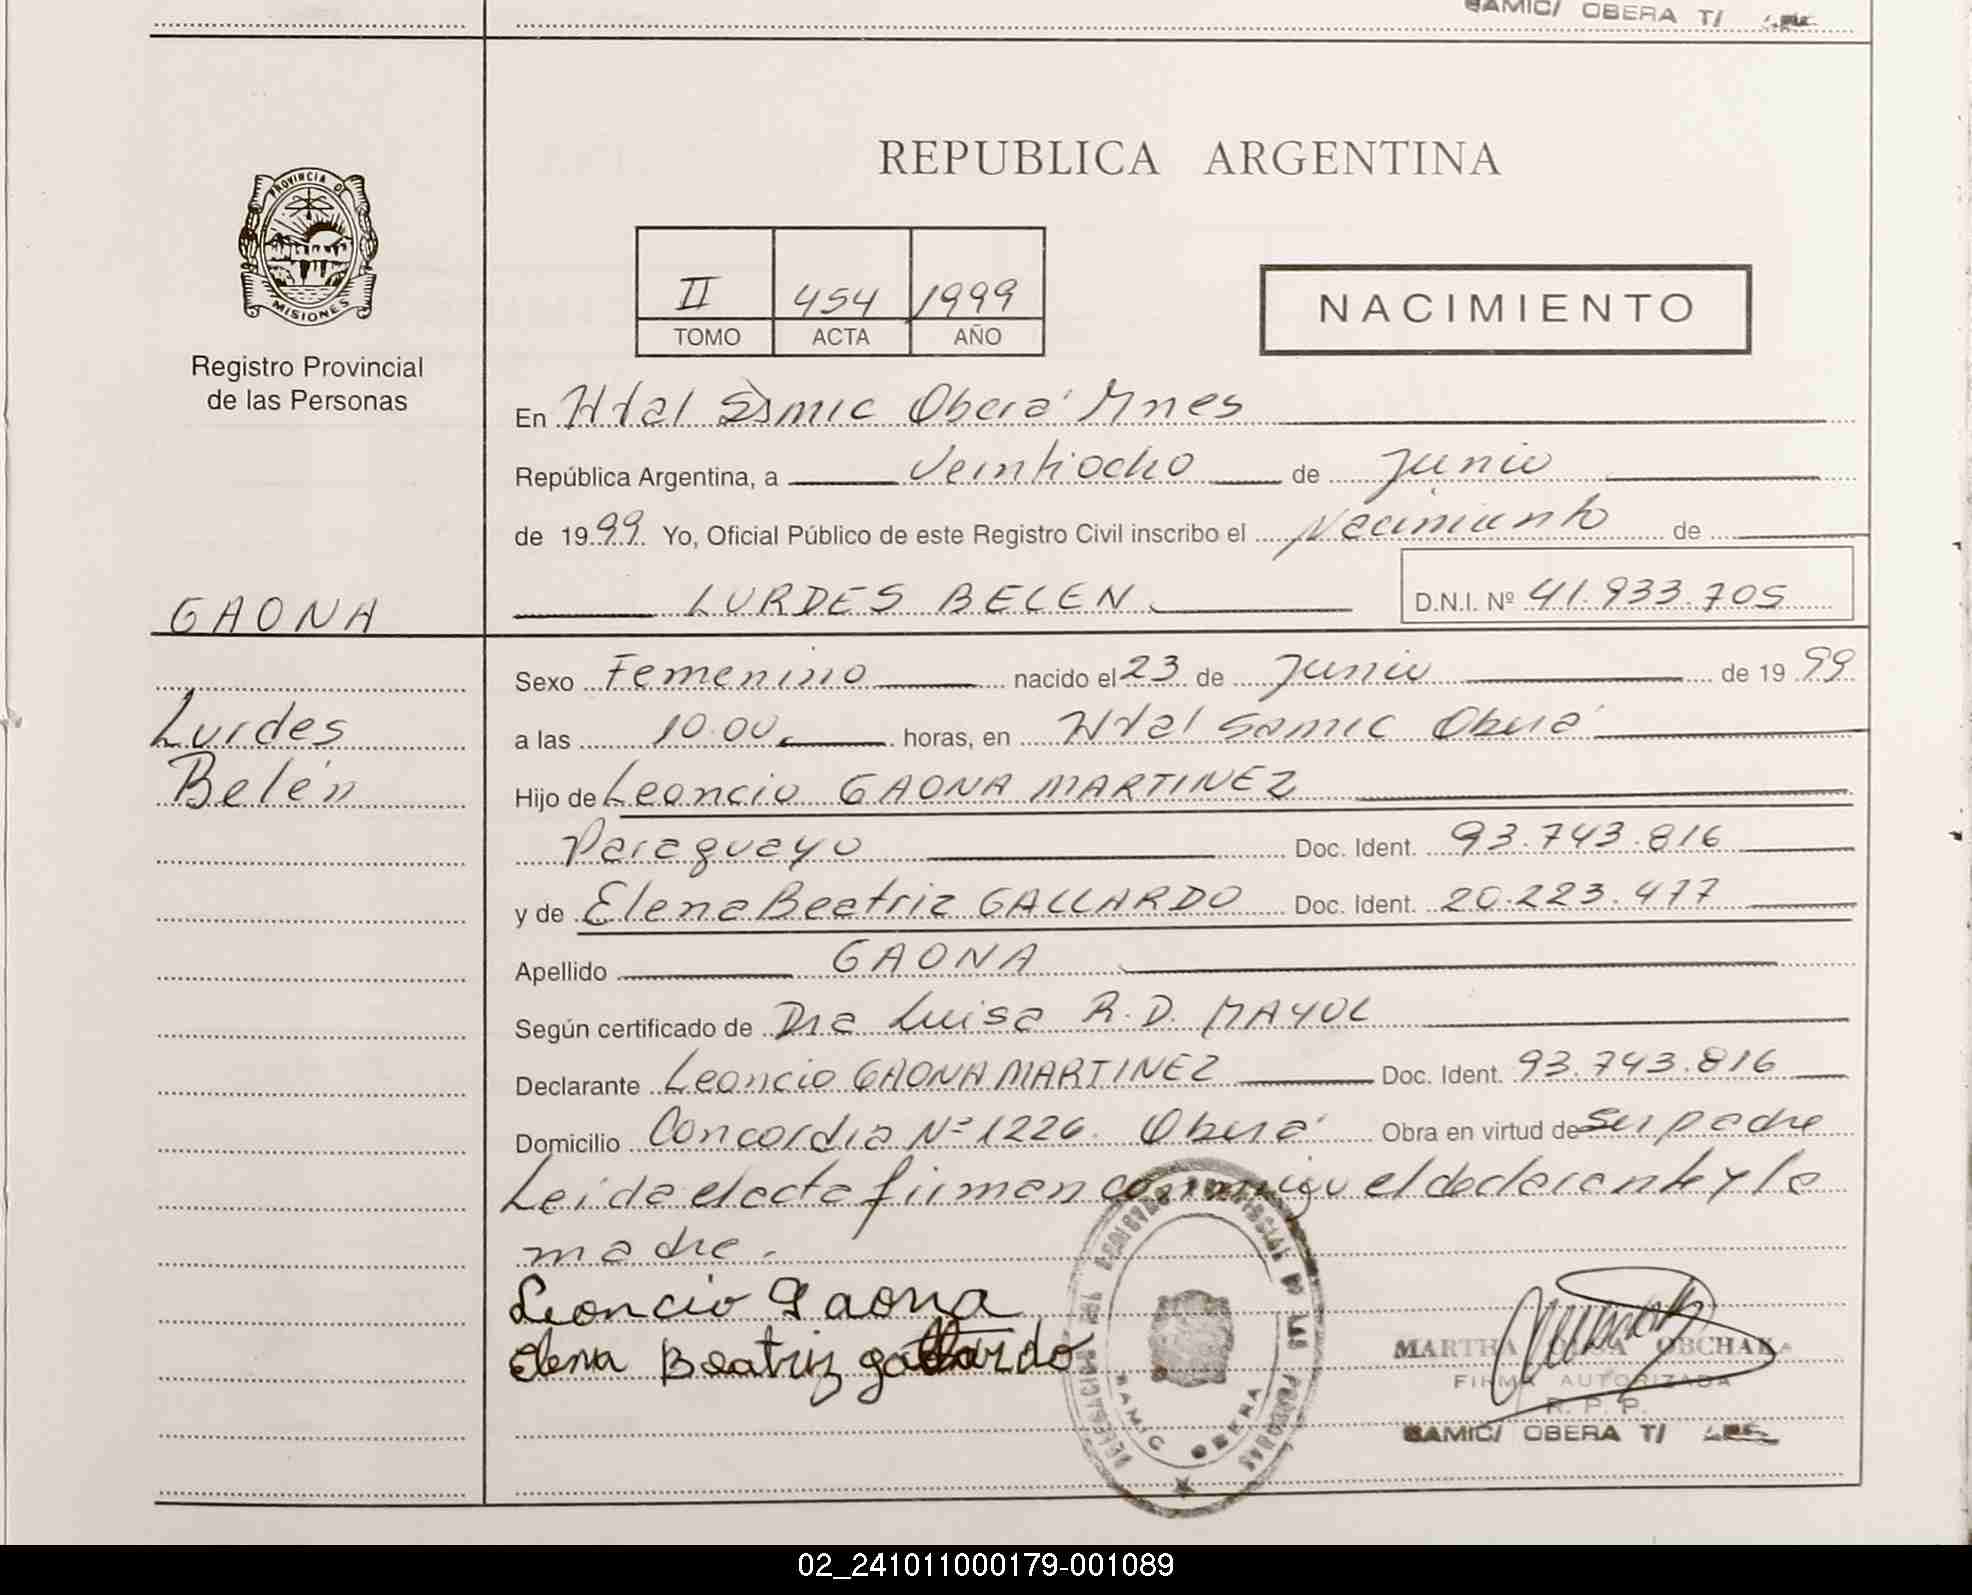 SAMIC/ OBERA T/
PROVINCIA DE
MISIONES
Registro Provincial
de las Personas
REPUBLICA ARGENTINA
II 454 1999
TOMO ACTA AÑO
NACIMIENTO
En Htal Samic Oberá Mnes
República Argentina, a Veintiocho de Junio
de 1999 Yo, Oficial Público de este Registro Civil inscribo el Nacimiento de
GAONA
LURDES BELEN
D.N.I. Nº 41.933.705
Lurdes
Belén
Sexo Femenino nacido el 23 de Junio de 1999
a las 10.00 horas, en Htal Samic Oberá
Hijo de Leoncio GAONA MARTINEZ
Paraguayo Doc. Ident. 93.743.816
y de Elena Beatriz GALLARDO Doc. Ident. 20.223.477
Apellido GAONA
Según certificado de Dra Luisa R.D. MAYOL
Declarante Leoncio GAONA MARTINEZ Doc. Ident. 93.743.816
Domicilio Concordia Nº 1226. Oberá Obra en virtud de Ser padre
Leida el acta firman conmigo el declarante y la
madre.
Leoncio Gaona
Elena Beatriz gallardo
SAMIC OBERA
MARTHA OBCHAKA
FIRMA AUTORIZADA
R. P. P.
SAMIC/ OBERA T/
02_241011000179-001089